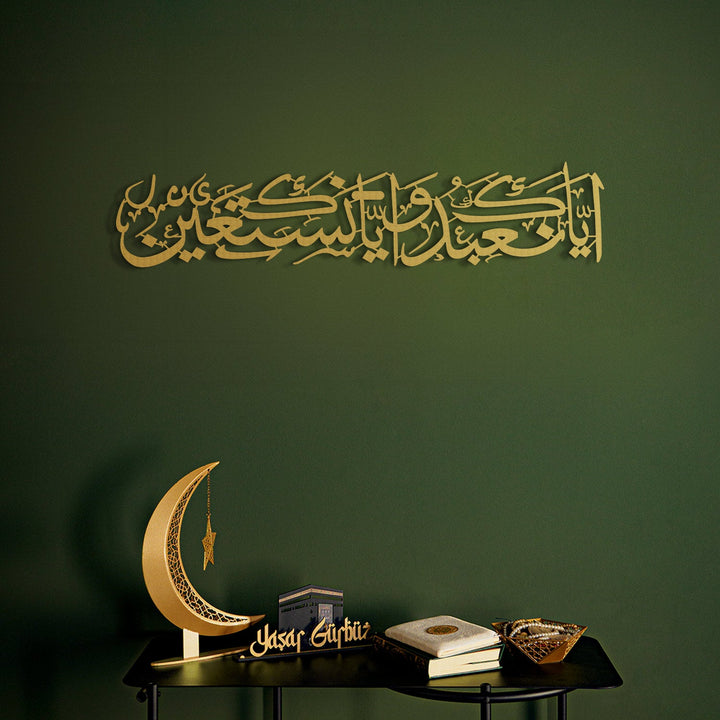 إياك نعبد وإياك نستعين
Yaşar Gürbüz